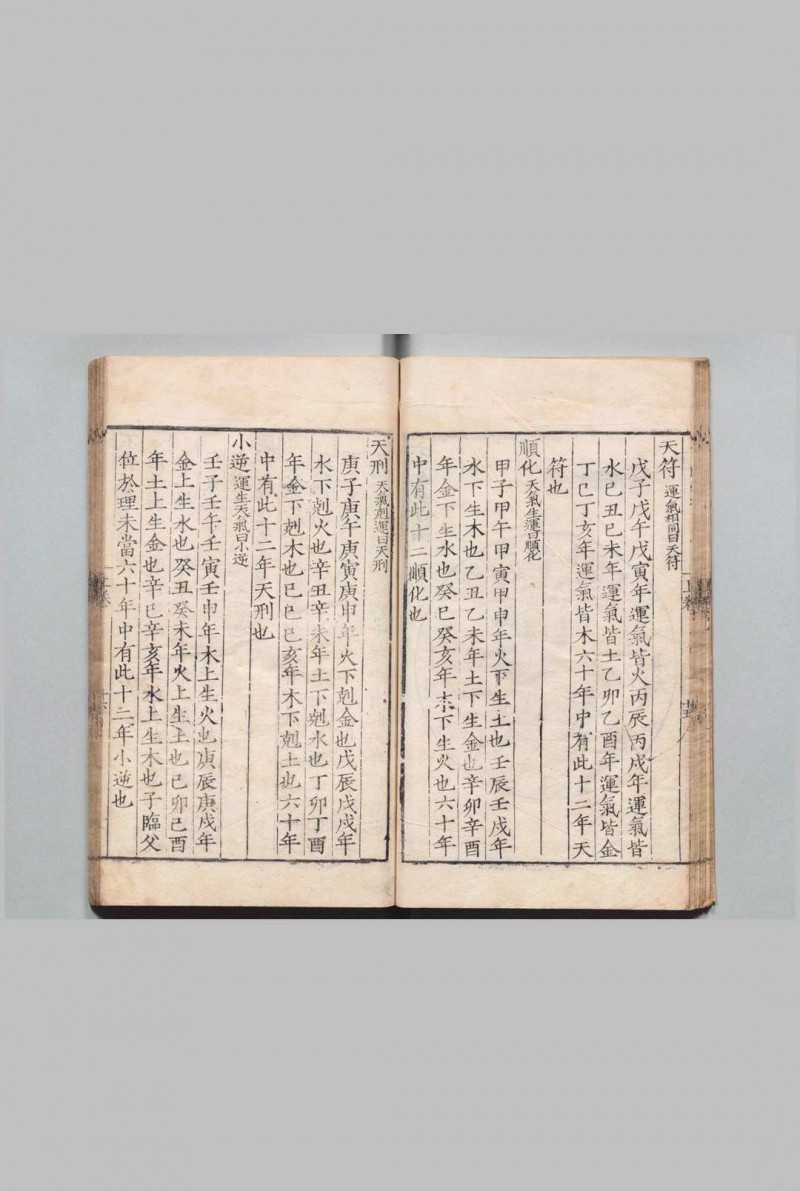 天符 運氣相同曰天符
戊子戊午戊寅年運氣皆火丙辰丙戌年運氣皆
水己丑己未年運氣皆土乙卯乙酉年運氣皆金
丁巳丁亥年運氣皆木六十年中有此十二年天
符也
順化 天氣生運曰順化
甲子甲午甲寅甲申年火下生土也壬辰壬戌年
水下生木也乙丑乙未年土下生金也辛卯辛酉
年金下生水也癸巳癸亥年木下生火也六十年
中有此十二順化也
天刑 天氣剋運曰天刑
庚子庚午庚寅庚申年火下剋金也戊辰戊戌年
水下剋火也辛丑辛未年土下剋水也丁卯丁酉
年金下剋木也己巳己亥年木下剋土也六十年
中有此十二年天刑也
小逆 運生天氣曰小逆
壬子壬午壬寅壬申年木上生火也庚辰庚戌年
金上生水也癸丑癸未年火上生土也己卯己酉
年土上生金也辛巳辛亥年水上生木也子臨父
位於理未當六十年中有此十二年小逆也